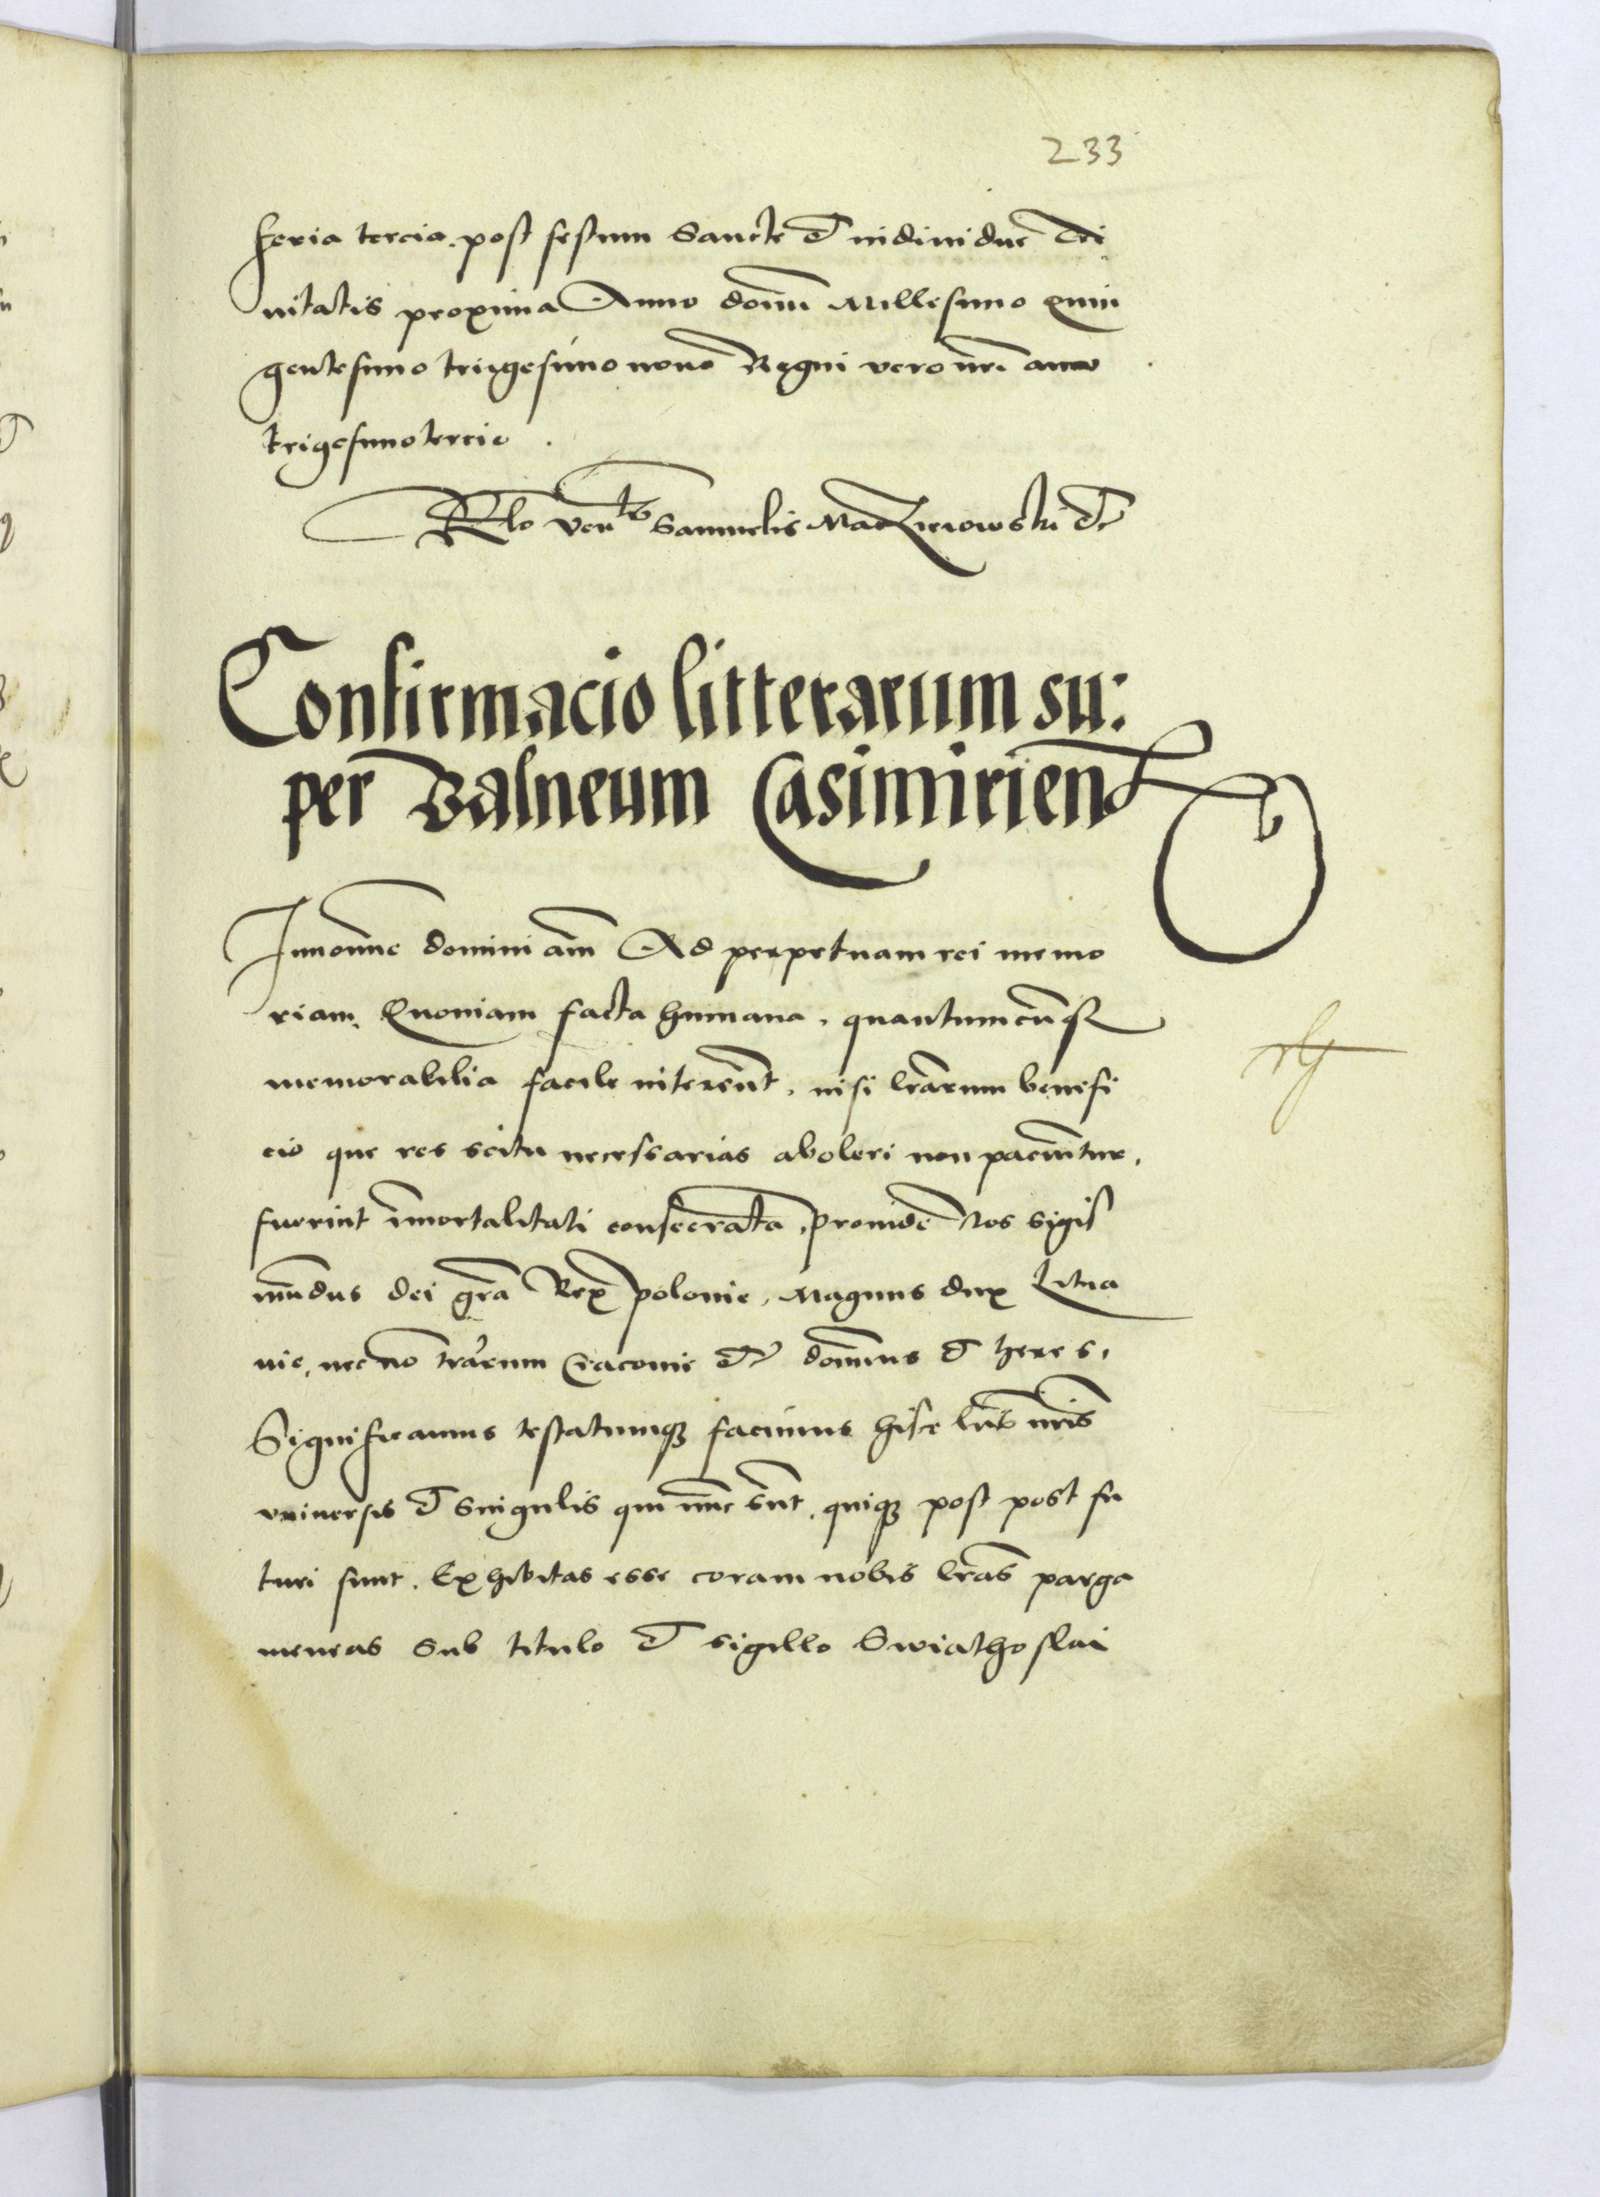 233
feria tercia. post festum Sancte et individue Tri
nitatis proxima Anno domini Millesimo Quin
gentesimo trigesimo nono Regni vero nri anno
trigesimotercio.
Rlo ven^lis Samuelis Macziejowski etc
Confirmacio litterarum su:
per Balneum Casimirien
In nomine domini am Ad perpetuam rei memo
riam. Quoniam facta humana, quantumcunq
memorabilia facile intereunt, nisi lrarum benefi
cio que res scitu necessarias aboleri non paciuntur,
fuerint immortalitati consecrata, proinde Nos Sigis
mundus dei gra Rex polonie, Magnus dux Litua
nie, nec no trarum Cracovie etc dominus et heres,
Significamus testatumq facimus hisce lris nris
universis et singulis qui nunc sunt, quiq post post fu
turi sunt. Exhibitas esse coram nobis lras parga
meneas sub titulo et sigillo Swiathoslai